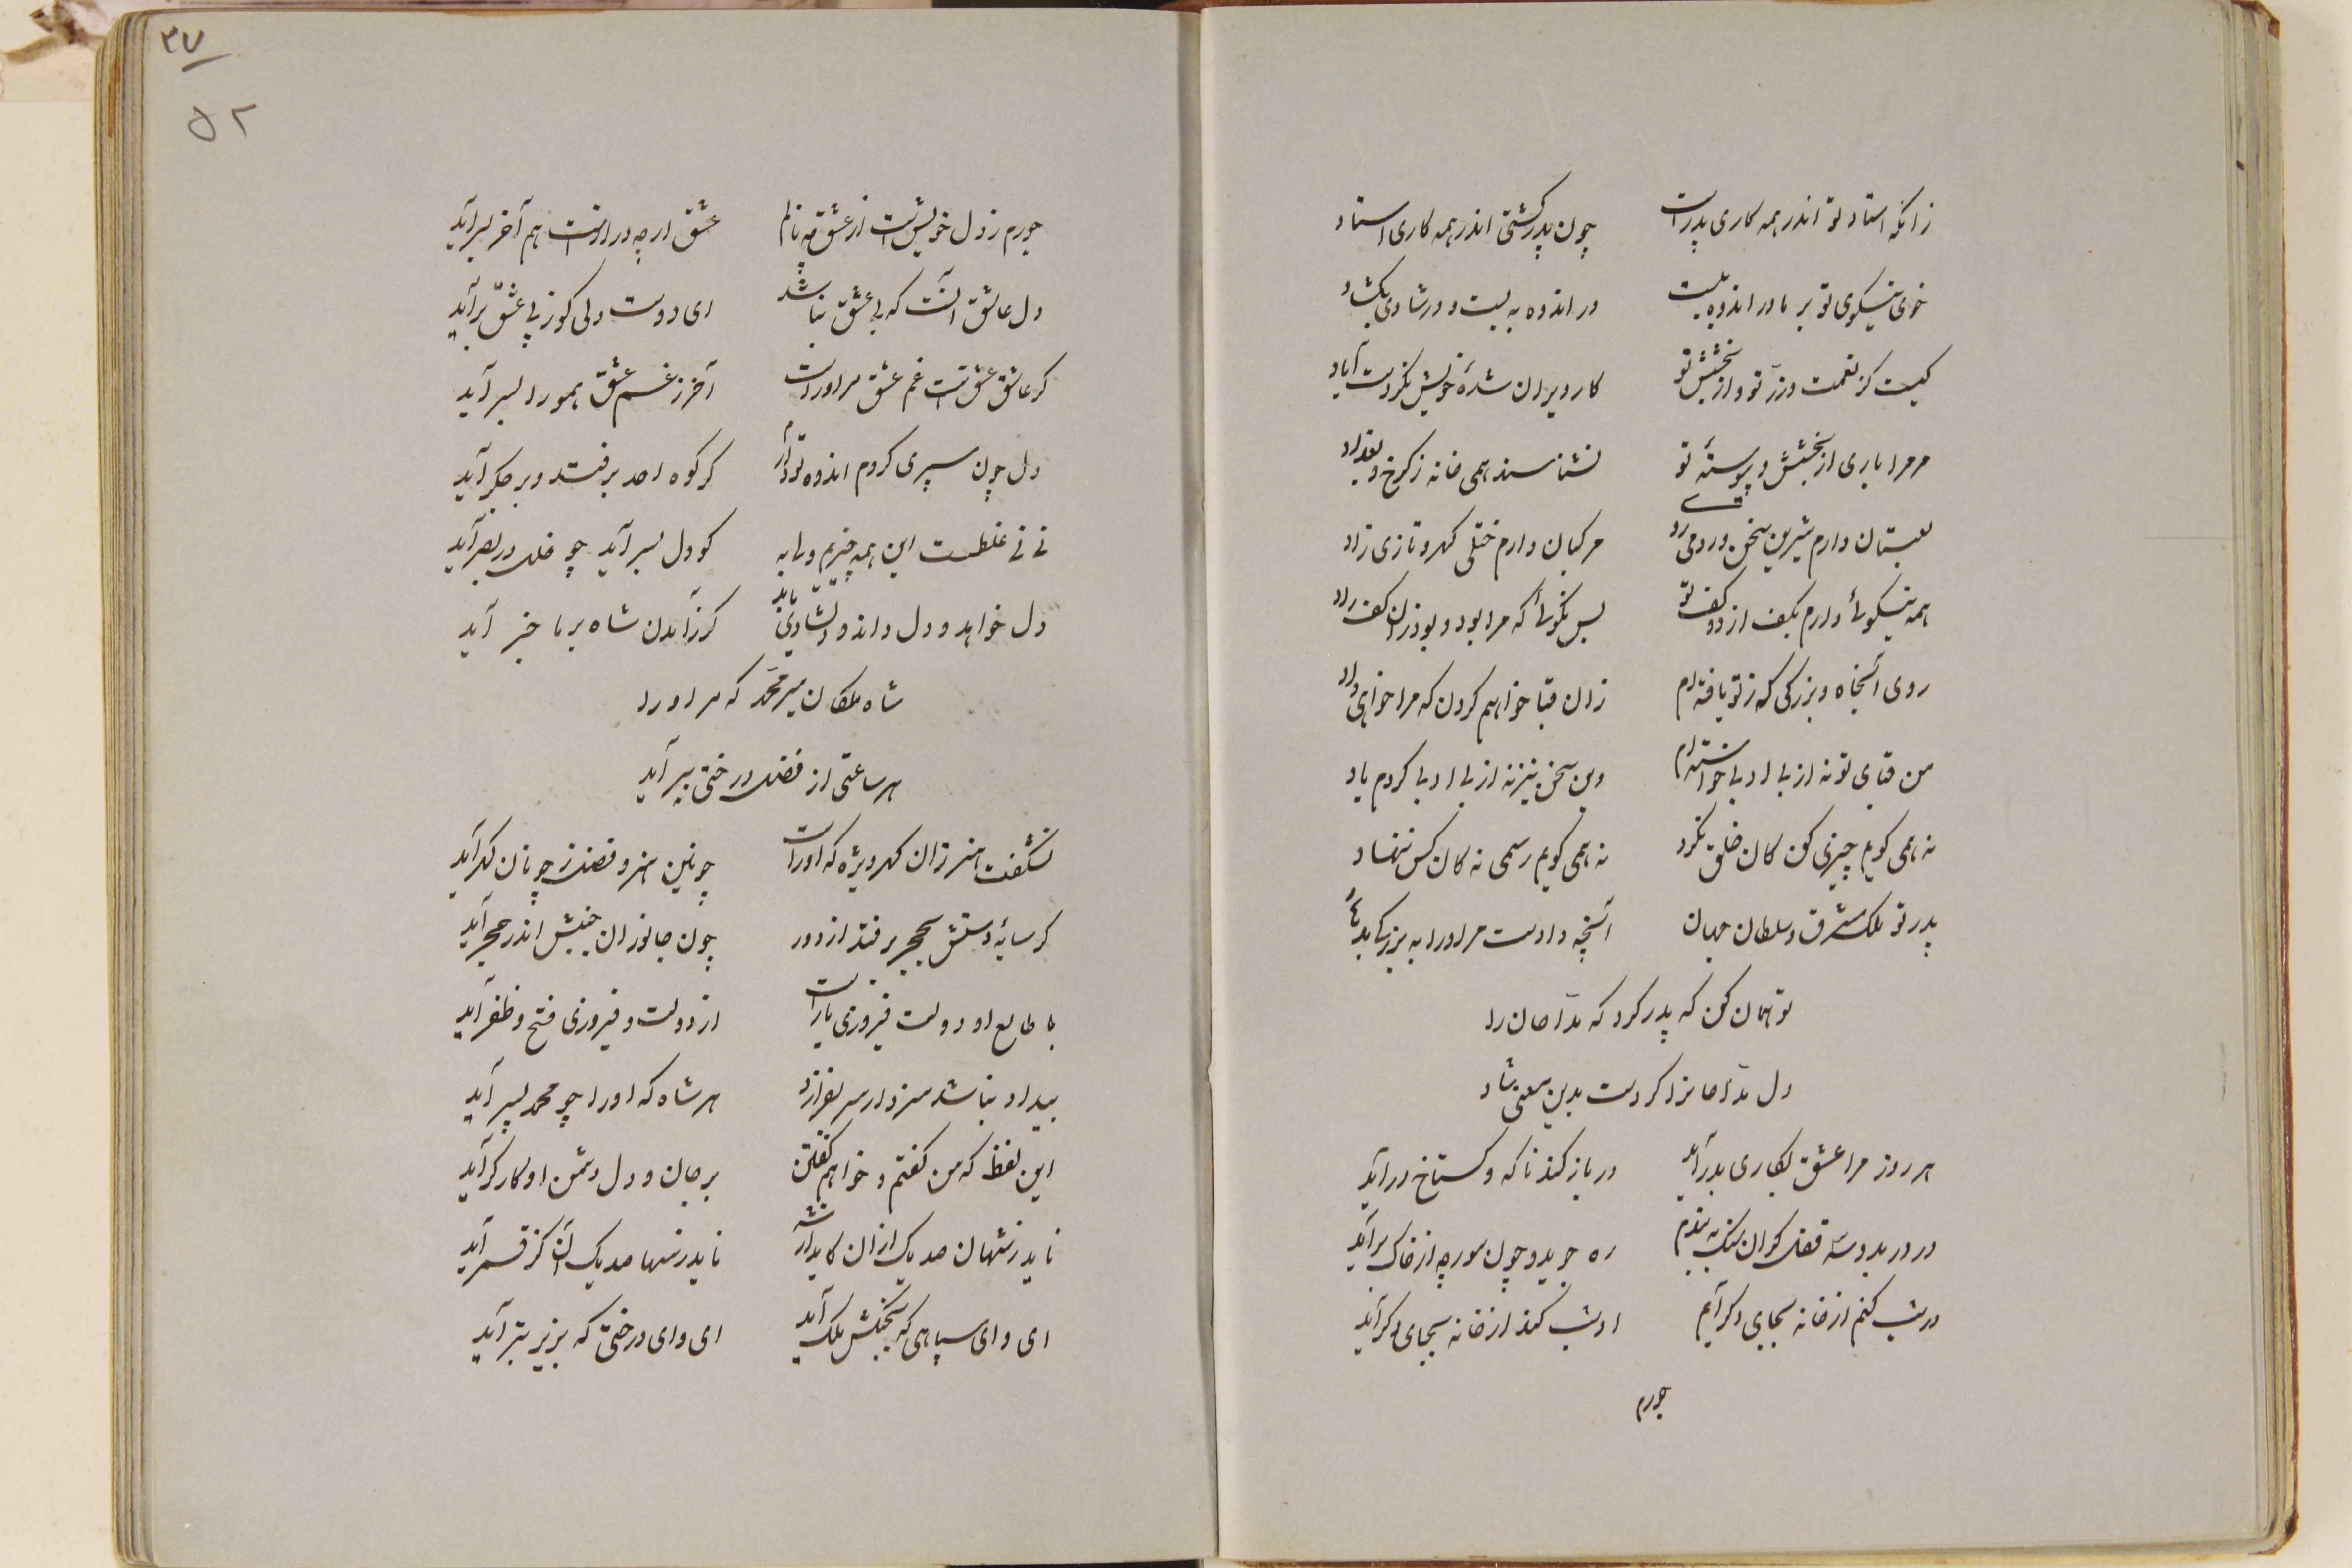 زانکه استاد تو اندر همه کاری پدرست چون پدر گشتی اندر همه کاری استاد
خوی نیکوی تو بر ما در اندوه ببست در اندوه به بست و در شادی بگشاد
کیست کز نعمت وز زر تو و از بخشش تو کار ویران شدهٔ خویش نکردست آباد
مر مرا باری از بخشش پیوستهٔ تو نشناسند همی خانه ز کرخ و بغداد
لعبتان دارم شیرین سخن و رومی رو مرکبان دارم ختلی گهر و تازی زاد
همه نیکوئی دارم بکف از دو کف تو بس نکوئی که مرا بود و بود زان کف راد
روی آنجاه و بزرگی که ز تو یافته‌ام زان قبا خواهم کردن که مرا خواهی داد
من قبای تو نه از بی ادبی خواسته‌ام وین سخن نیز نه از بی ادبی کردم یاد
نه همی گویم چیزی کن کان خلق نکرد نه همی گویم رسمی نه کان کس ننهاد
پدر تو ملک مشرق و سلطان جهان آنچه دادست مر او را به بزرگی
تو همان کن که پدر کرد که مداحان را
دل مداحانرا کردست بدین معنی شاد
هر روز مرا عشق نگاری بدر آید در باز کند ناگه و گستاخ در آید
در در بدو سه قفل گران سنگ به بندم ره جوید و چون مورچه از خاک بر آید
ور شب کنم از خانه بجای دگر آیم او شب کند از خانه بجای دگر آید
جورم
۳۷
۵۲
جورم ز دل خویش است از عشق چه نالم عشق ارچه درازست هم آخر بسر آید
دل عاشق آنست که بی عشق نباشد ای دوست دلی کو ز پی عشق بر آید
گر عاشق عشق است غم عشق مر او راست آخر ز غم عشق همو را بسر آید
دل چون سپری کردم اندوه تو گر کوه احد برفتد و بر جگر آید
نی نی غلطست این همه چیزیم و لابه کو دل بسر آید چو خلل در بصر آید
دل خواهد و دل داند و دلشادی باید کز آمدن شاه بر ما خبر آید
شاه ملکان میر محمد که مر او را
هر ساعتی از فضل درختی ببر آید
نشگفت هنر زان گهر ویژه که او راست چونین هنر و فضل ز چونان گهر آید
گر سایهٔ دستش بحجر برفتد از دور چون جانوران جنبش اندر حجر آید
با طالع او دولت فیروزی یارست از دولت و فیروزی فتح و ظفر آید
بیداد نباشد سزد ار سر بفرازد هر شاه که او را چو محمد پسر آید
این لفظ که من گفتم و خواهم گفتن بر جان و دل دشمن او کارگر آید
ناید ز شهان صد یک از آن کاید ناید ز سنها صد یک آن کز قمر آید
ای وای سپاهی که بجنگش ملک آید ای وای درختی که بزیر تبر آید